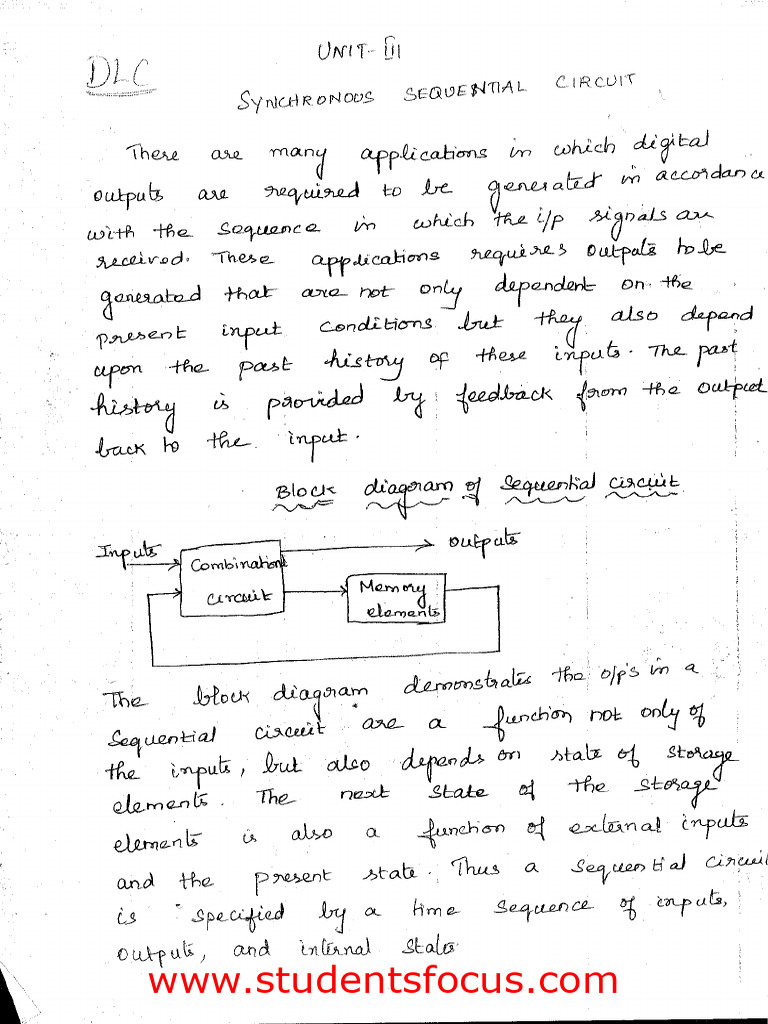 UNIT-III
DLC
SYNCHRONOUS SEQUENTIAL CIRCUIT
There are many applications in which digital
outputs are required to be generated in accordance
with the sequence in which the i/p signals are
received. These applications requires outputs to be
generated that are not only dependent on the
present input conditions but they also depend
upon the past history of these inputs. The past
history is provided by feedback from the output
back to the input.
Block diagram of sequential circuit
Inputs
Outputs
Combination
circuit
Memory
elements
The block diagram demonstrates the o/p's in a
sequential circuit are a function not only of
the inputs, but also depends on state of storage
elements. The next state of the storage
elements is also a function of external inputs
and the present state. Thus a sequential circuit
is specified by a time sequence of inputs,
outputs, and internal state.
www.studentsfocus.com